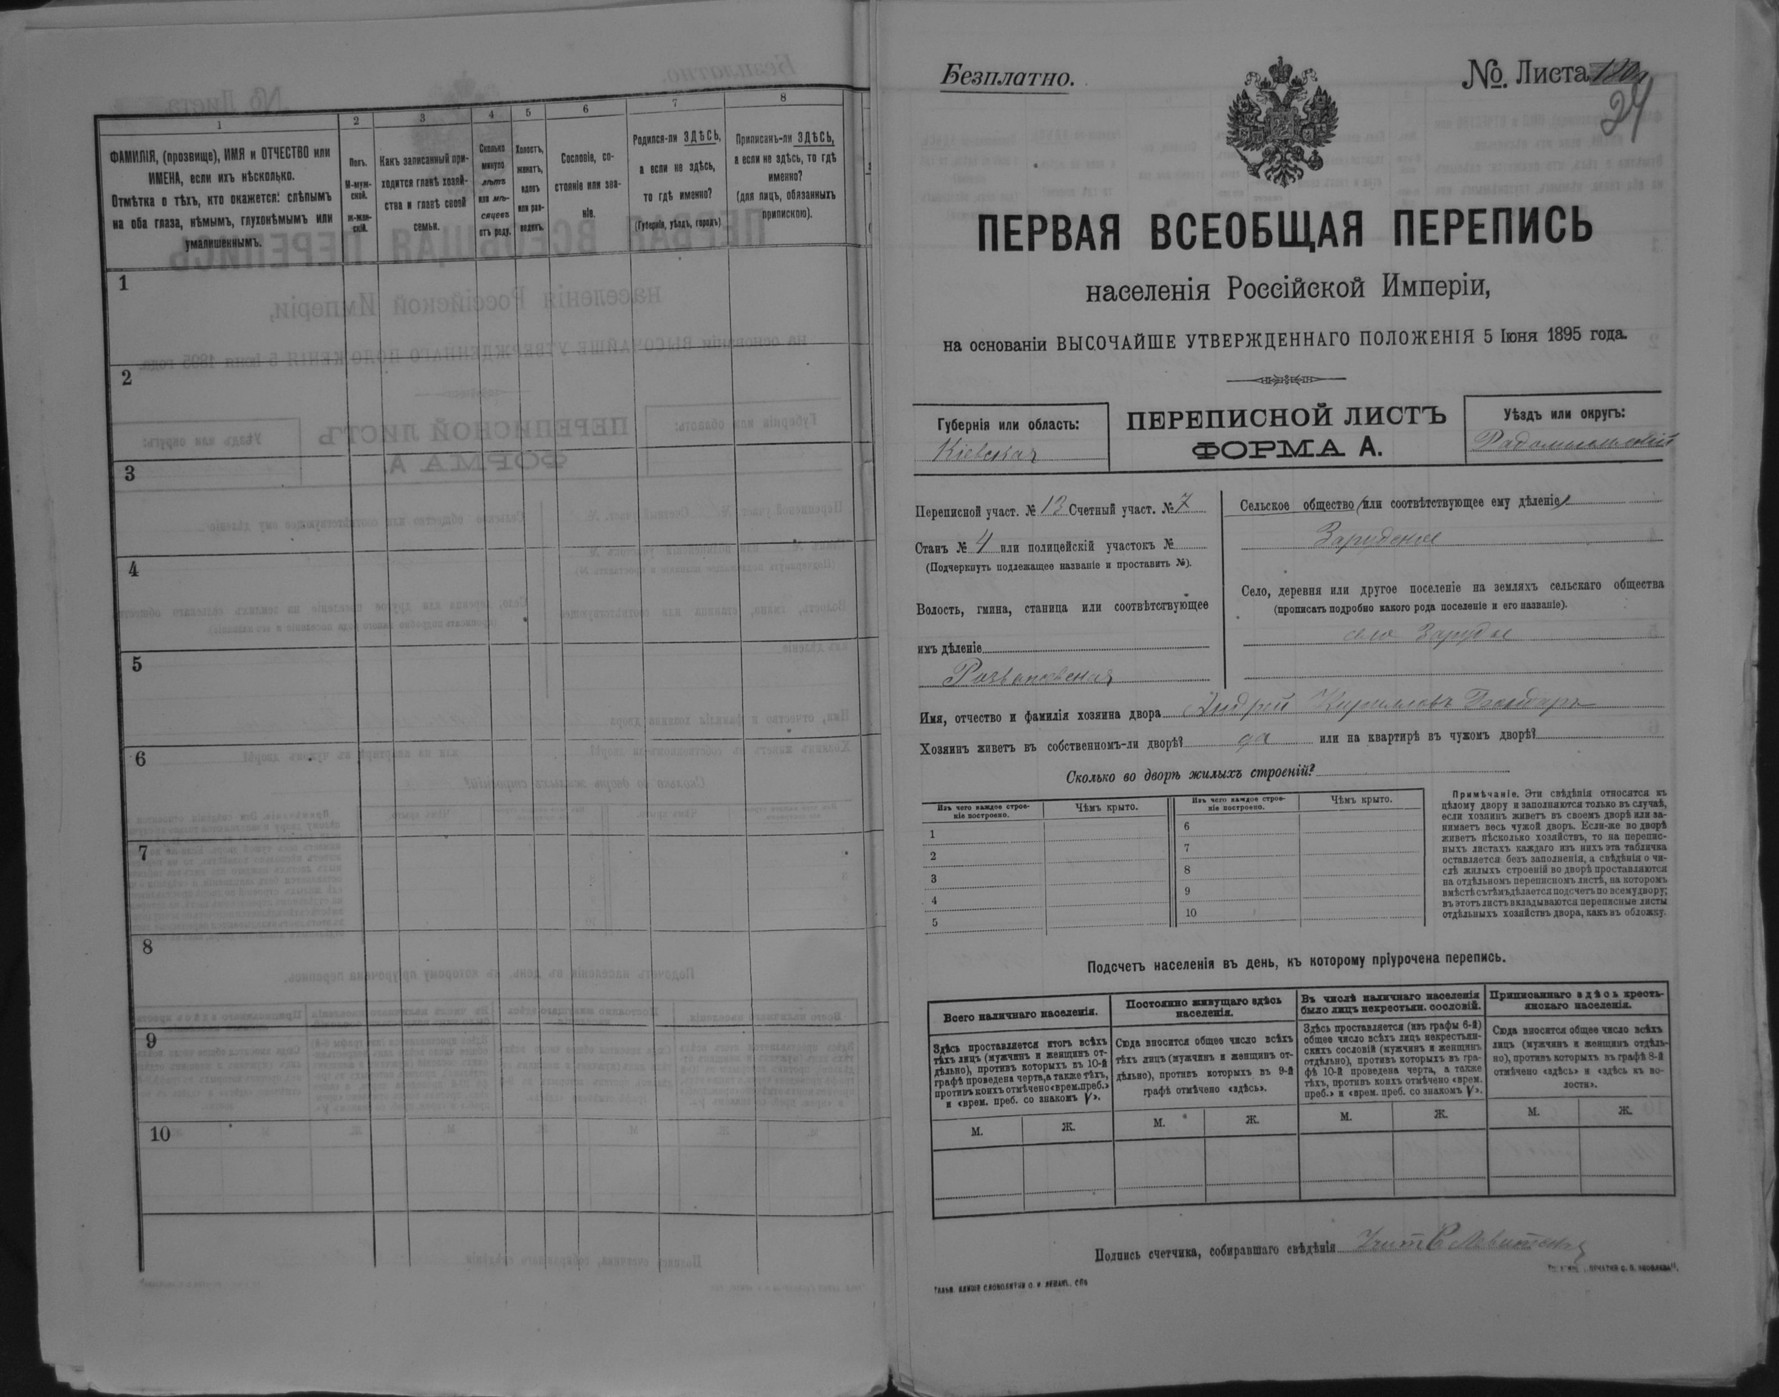 1
2
3
4
5
6
7
8
ФАМИЛІЯ, (прозвище), ИМЯ и ОТЧЕСТВО или
ИМЕНА, если ихъ нѣсколько.
Отмѣтка о тѣхъ, кто окажется: слѣпымъ
на оба глаза, нѣмымъ, глухонѣмымъ или
умалишеннымъ.
Полъ.
М-муж-
ской.
ж-жен-
скій.
Какъ записанный при-
ходится главѣ хозяй-
ства и главѣ своей
семьи.
Сколько
минуло
лѣтъ
или мѣ-
сяцевъ
отъ роду.
Холостъ,
женатъ,
вдовъ
или раз-
веденъ.
Сословіе, со-
стояніе или зва-
ніе.
Родился-ли ЗДѢСЬ,
а если не здѣсь,
то гдѣ именно?
(Губернія, уѣздъ, городъ)
Приписанъ-ли ЗДѢСЬ,
а если не здѣсь, то гдѣ
именно?
(для лицъ, обязанныхъ
припискою).
1
2
3
4
5
6
7
8
9
10
Безплатно.
№ Листа
24
ПЕРВАЯ ВСЕОБЩАЯ ПЕРЕПИСЬ
населенія Россійской Имперіи,
на основаніи ВЫСОЧАЙШЕ УТВЕРЖДЕННАГО ПОЛОЖЕНІЯ 5 Іюня 1895 года.
Губернія или область:
Кіевская
ПЕРЕПИСНОЙ ЛИСТЪ
ФОРМА А.
Уѣздъ или округъ:
Радомысльскій
Переписной участ. № 13 Счетный участ. № 7
Станъ № 4 или полицейскій участокъ №
(Подчеркнуть подлежащее названіе и проставить №).
Волость, гмина, станица или соотвѣтствующее
имъ дѣленіе
Сельское общество (или соотвѣтствующее ему дѣленіе)
Зарудское
Село, деревня или другое поселеніе на земляхъ сельскаго общества
(прописать подробно какого рода поселеніе и его названіе).
село Зарудье
Имя, отчество и фамилія хозяина двора Андрей Кирилловъ Бондарь
Хозяинъ живетъ въ собственномъ-ли дворѣ? да или на квартирѣ въ чужомъ дворѣ?
Сколько во дворѣ жилыхъ строеній?
Изъ чего каждое строе-
ніе построено.
Чѣмъ крыто.
Изъ чего каждое строе-
ніе построено.
Чѣмъ крыто.
1
2
3
4
5
6
7
8
9
10
Примѣчаніе. Эти свѣдѣнія относятся къ
цѣлому двору и заполняются только въ случаѣ,
если хозяинъ живетъ въ своемъ дворѣ или за-
нимаетъ весь чужой дворъ. Если-же во дворѣ
живетъ нѣсколько хозяйствъ, то на перепис-
ныхъ листахъ каждаго изъ нихъ эта табличка
оставляется безъ заполненія, а свѣдѣнія о чи-
слѣ жилыхъ строеній во дворѣ проставляются
на отдѣльномъ переписномъ листѣ, на которомъ
вмѣстѣ съ тѣмъ дѣлается подсчетъ по всему двору;
въ этотъ листъ вкладываются переписные листы
отдѣльныхъ хозяйствъ двора, какъ въ обложку.
Подсчетъ населенія въ день, къ которому пріурочена перепись.
Всего наличнаго населенія.
Здѣсь проставляется итогъ всѣхъ
тѣхъ лицъ (мужчинъ и женщинъ от-
дѣльно), противъ которыхъ въ 10-й
графѣ проведена черта, а также тѣхъ,
противъ коихъ отмѣчено «врем. преб.»
и «врем. преб. со знакомъ V».
Постоянно живущаго здѣсь
населенія.
Сюда вносится общее число всѣхъ
тѣхъ лицъ (мужчинъ и женщинъ от-
дѣльно), противъ которыхъ въ 9-й
графѣ отмѣчено «здѣсь».
Въ числѣ наличнаго населенія
было лицъ некрестьян. сословій.
Здѣсь проставляется (изъ графы 6-й)
общее число всѣхъ лицъ некрестьян-
скихъ сословій (мужчинъ и женщинъ
отдѣльно), противъ которыхъ въ гра-
фѣ 10-й проведена черта, а также
тѣхъ, противъ коихъ отмѣчено «врем.
преб.» и «врем. преб. со знакомъ V».
Приписаннаго здѣсь кресть-
янскаго населенія.
Сюда вносится общее число всѣхъ
лицъ (мужчинъ и женщинъ отдѣль-
но), противъ которыхъ въ графѣ 8-й
отмѣчено «здѣсь» и «здѣсь въ во-
лости».
М.
Ж.
М.
Ж.
М.
Ж.
М.
Ж.
Подпись счетчика, собиравшаго свѣдѣнія